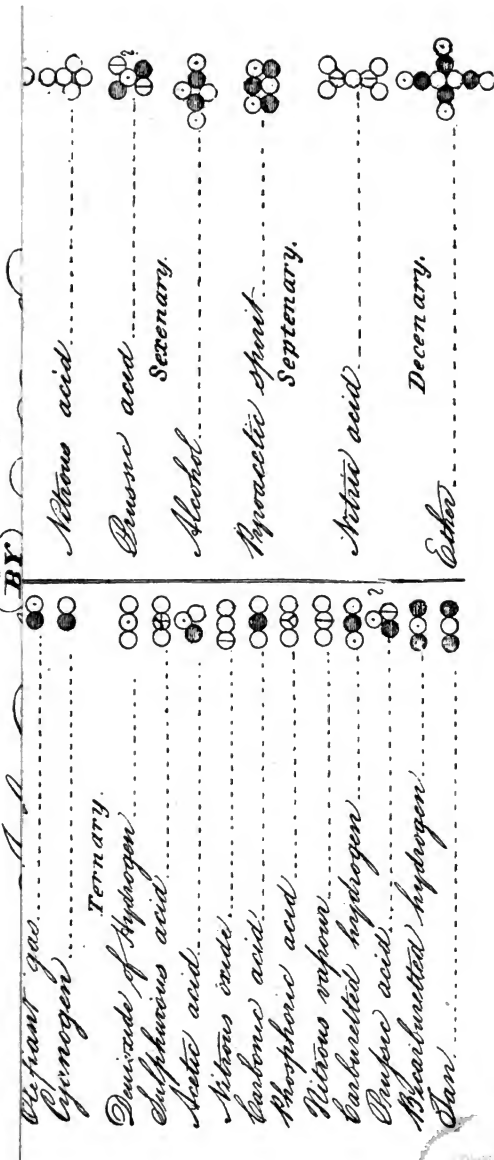 BY
Olefiant gas
Cyanogen
Ternary.
Deutoxide of Hydrogen
Sulphurous acid
Acetic acid
Nitrous oxide
Carbonic acid
Phosphoric acid
Nitrous vapour
Carburetted hydrogen
Pruſsic acid ?
Bicarburetted hydrogen
Tan
Nitrous acid
Prussic acid ?
Sexenary.
Alcohol
Pyroacetic spirit
Septenary.
Nitric acid
Decenary.
Ether